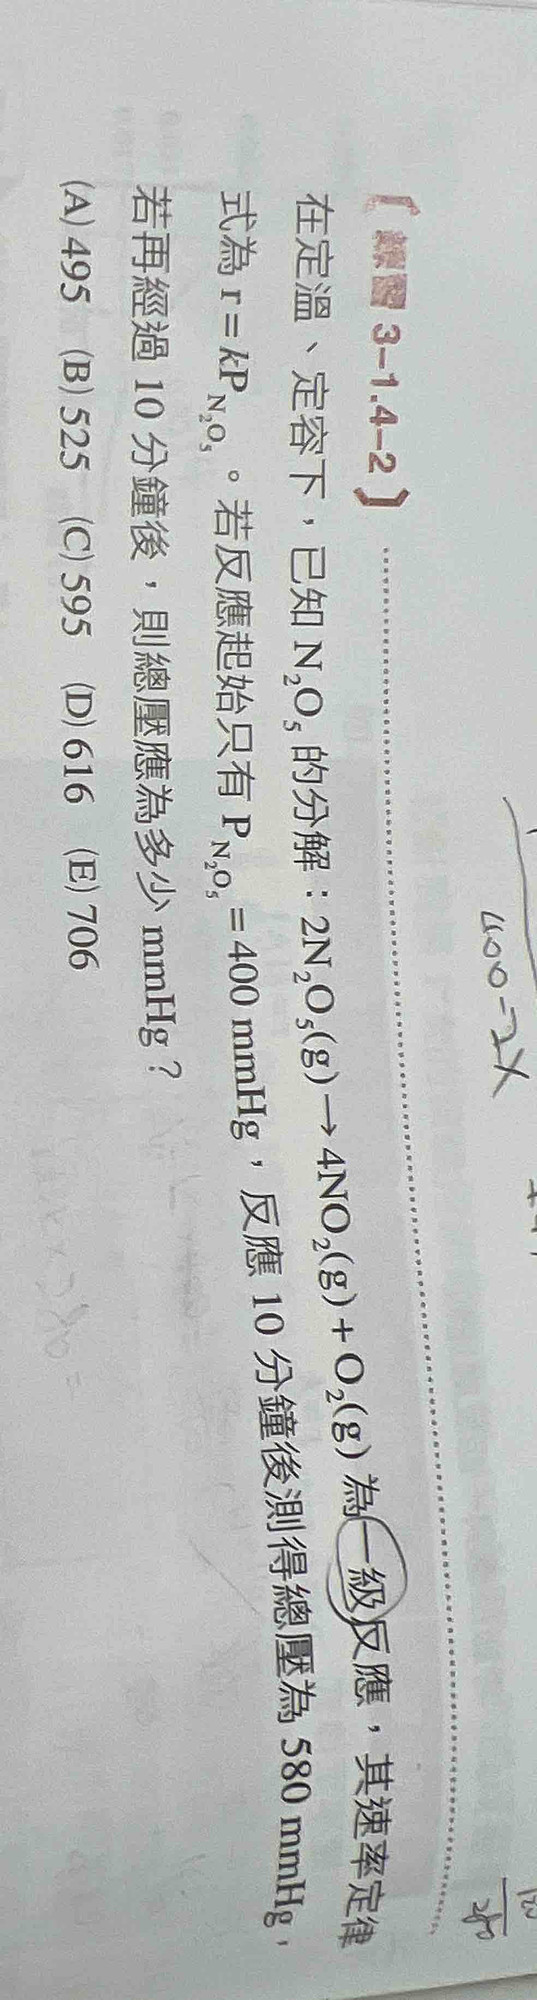 〔練習 3-1.4-2〕
在定溫、定容下，已知 N₂O₅ 的分解：2N₂O₅(g)→4NO₂(g)+O₂(g) 為一級反應，其速率定律
式為 r=kP_N₂O₅。若反應起始只有 P_N₂O₅=400 mmHg，反應 10 分鐘後測得總壓為 580 mmHg，
若再經過 10 分鐘後，則總壓應為多少 mmHg？
(A) 495 (B) 525 (C) 595 (D) 616 (E) 706
400-2X